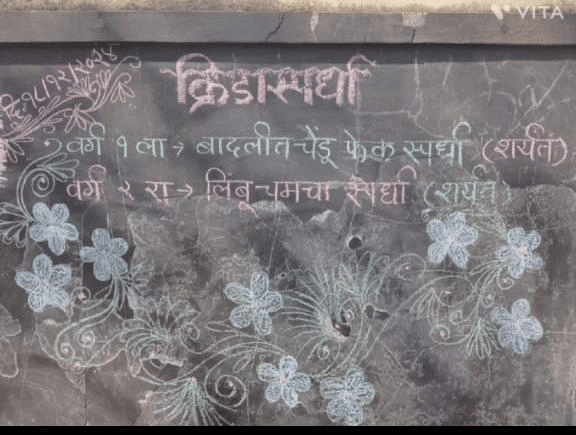 VITA
दि.१८/१२/२०२४
क्रिडास्पर्धा
वर्ग १ ला → बादलीत चेंडू फेक स्पर्धा (शर्यत)
वर्ग २ रा → लिंबू चमचा स्पर्धा (शर्यत)